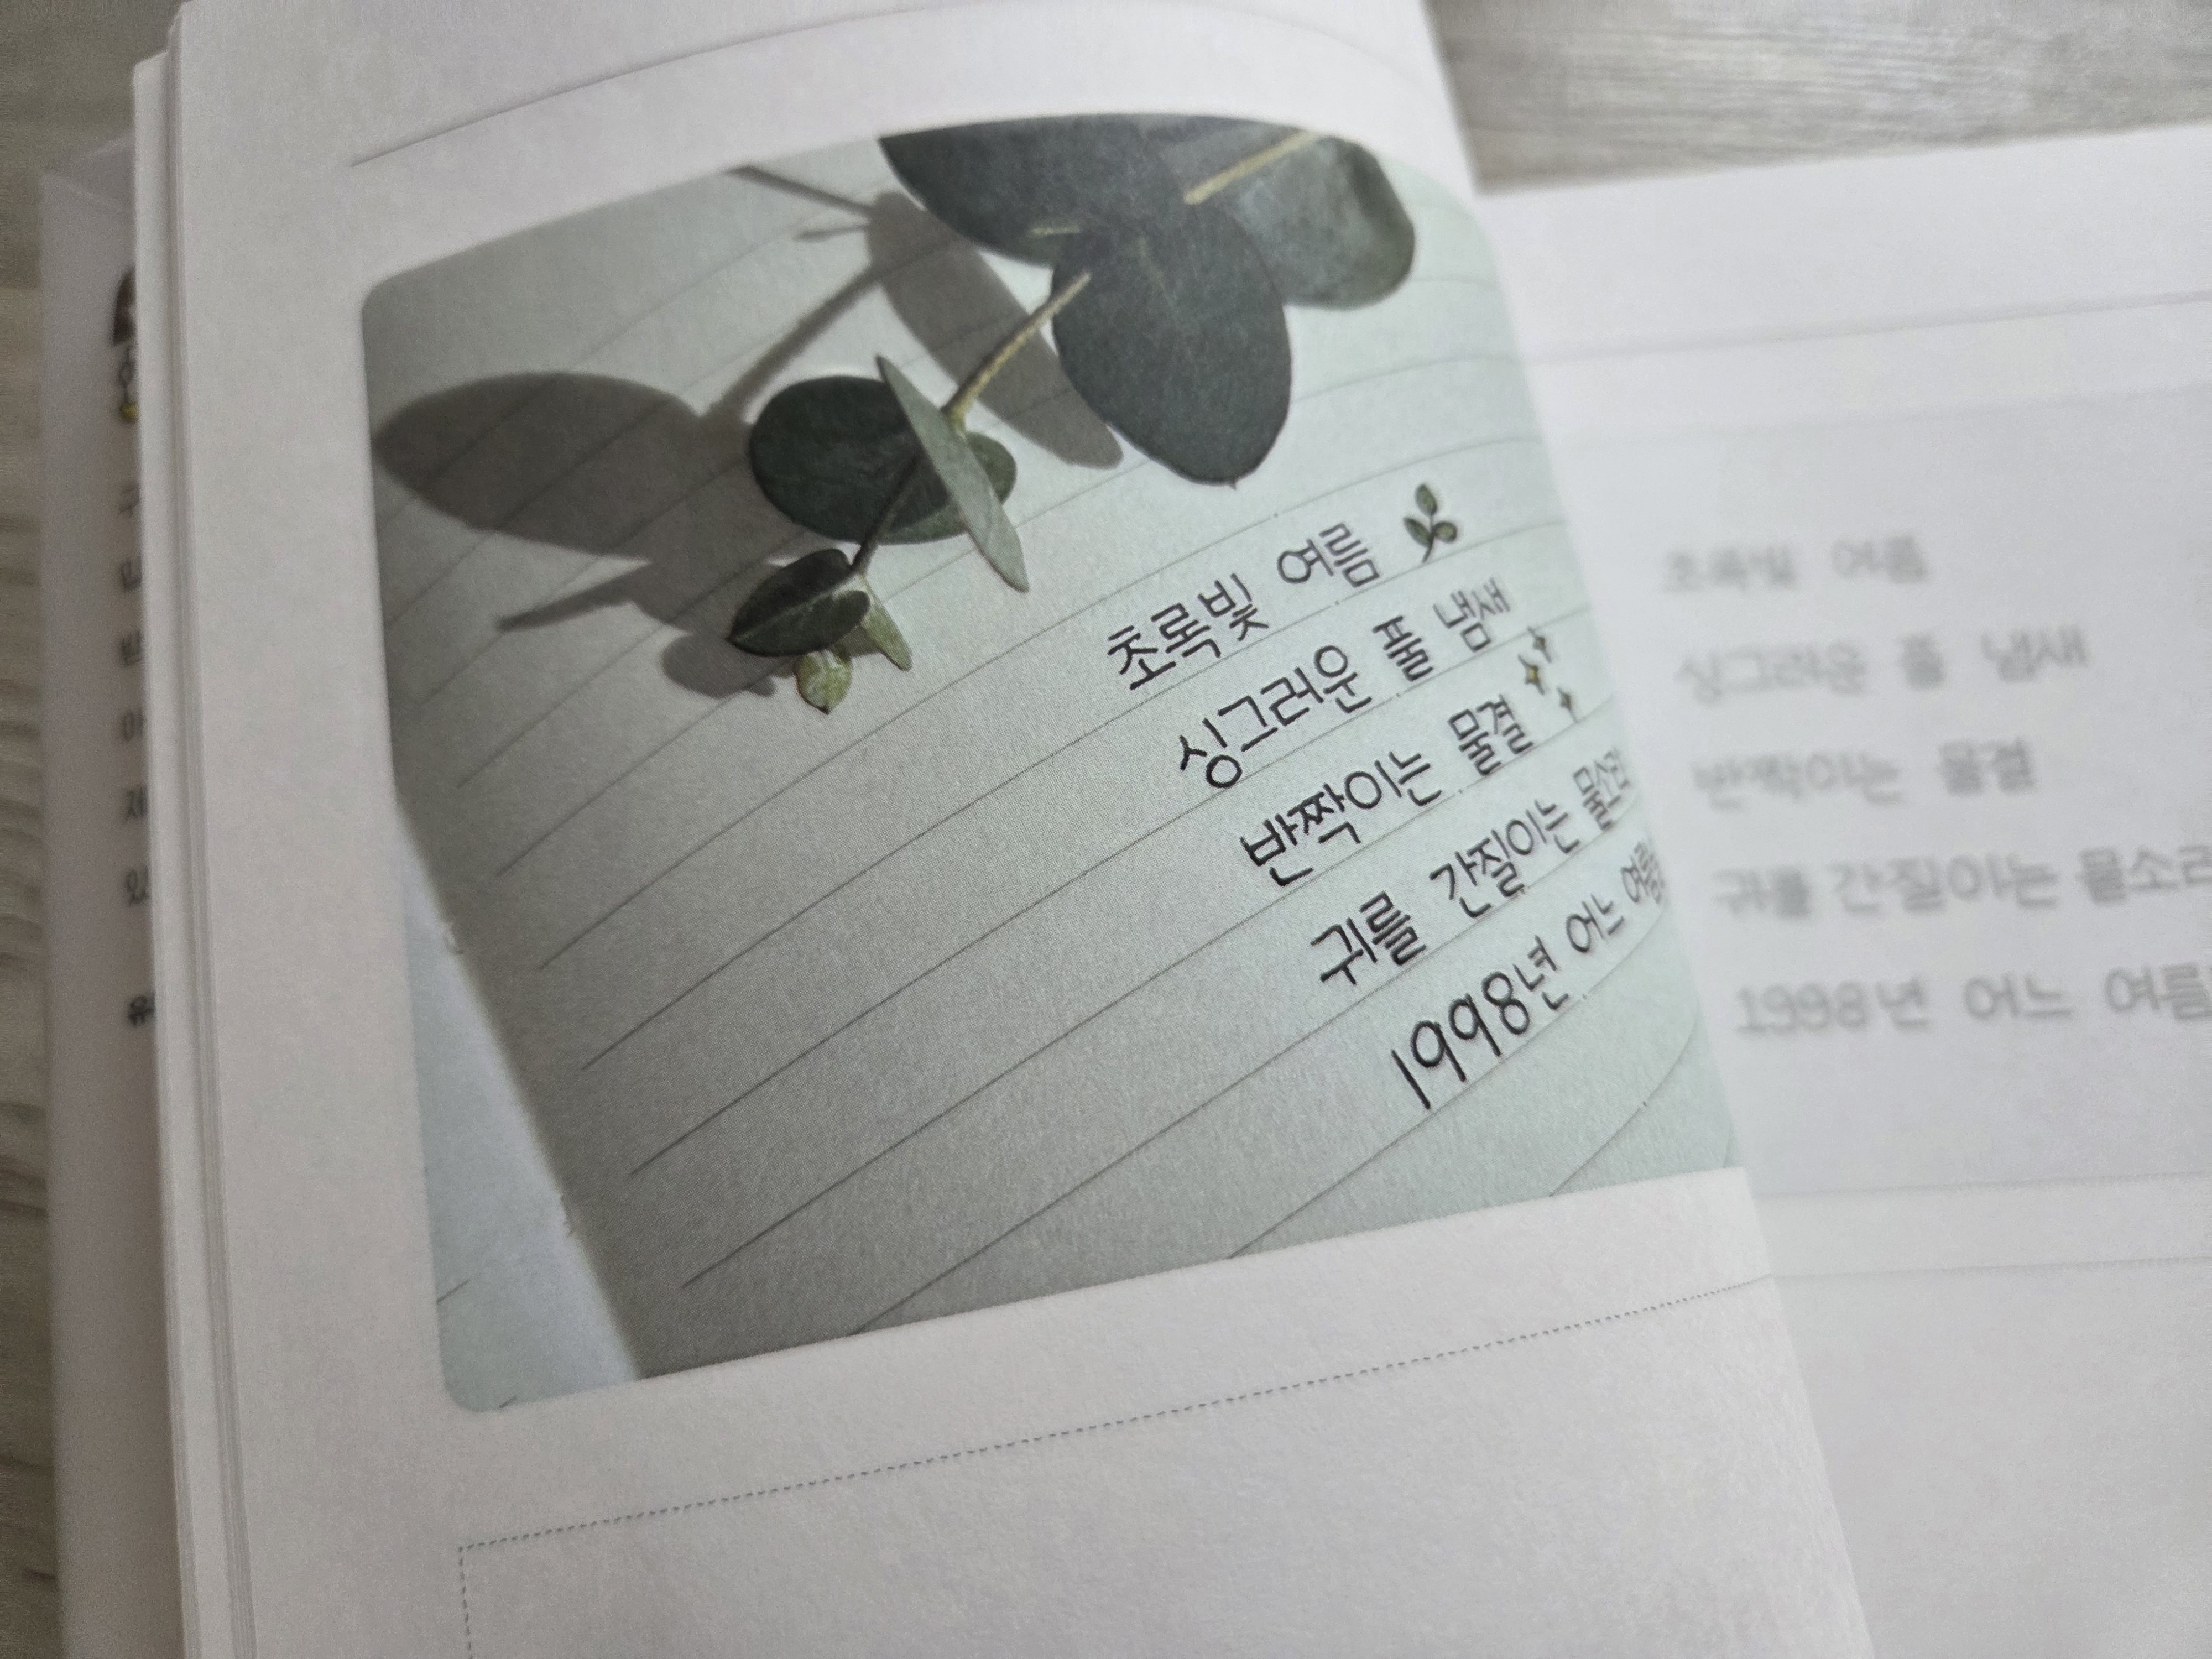 초록빛 여름
싱그러운 풀 냄새
반짝이는 물결
귀를 간질이는 물소리
1998년 어느 여름
초록빛 여름
싱그러운 풀 냄새
반짝이는 물결
귀를 간질이는 물소리
1998년 어느 여름